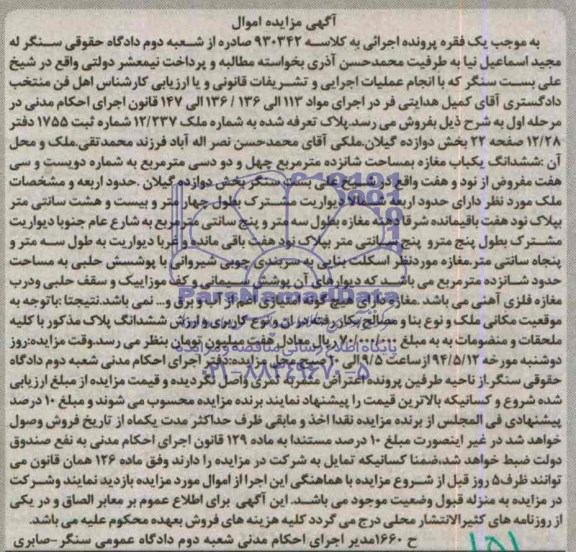 آگهی مزایده اموال
به موجب یک فقره پرونده اجرائی به کلاسه ۹۳۰۳۴۲ صادره از شعبه دوم دادگاه حقوقی سنگر له
مجید اسماعیل نیا به طرفیت محمدحسن آذری بخواسته مطالبه و پرداخت نیمعشر دولتی واقع در شیخ
علی بست سنگر که با انجام عملیات اجرایی و تشریفات قانونی و با ارزیابی کارشناس اهل فن منتخب
دادگستری آقای کمیل هدایتی فر در اجرای مواد ۱۱۳ الی ۱۳۶ / ۱۳۶ الی ۱۴۷ قانون اجرای احکام مدنی در
مرحله اول به شرح ذیل بفروش می رسد.پلاک تعرفه شده به شماره ملک ۱۲/۲۳۷ شماره ثبت ۱۷۵۵ دفتر
۱۲/۲۸ صفحه ۲۲ بخش دوازده گیلان.ملکی آقای محمدحسن نصر اله آباد فرزند محمدتقی.ملک و محل
آن :ششدانگ یکباب مغازه بمساحت شانزده مترمربع چهل و دو دسی مترمربع به شماره دویست و سی
هفت مفروض از نود و هفت واقع در شیخ علی بست سنگر بخش دوازده گیلان .حدود اربعه و مشخصات
ملک مورد نظر دارای حدود اربعه شمالا دیواریت مشترک بطول چهار متر و بیست و هشت سانتی متر
بپلاک نود هفت باقیمانده شرقا دهنه مغازه بطول سه متر و پنج سانتی مترمربع به شارع عام جنوبا دیواریت
مشترک بطول پنج مترو پنج سانتی متر بپلاک نود هفت باقی مانده و غربا دیواریت به طول سه متر و
پنجاه سانتی متر.مغازه موردنظر اسکلت بنایی به سربندی چوبی شیروانی با پوشسش حلبی به مساحت
حدود شانزده مترمربع می باشد که دیوارهای آن پوشش سیمانی و کف موزاییک و سقف حلبی ودرب
مغازه فلزی آهنی می باشد .مغازه دارای هیچ گونه امتیازی اعم از آب و برق و... نمی باشد.نتیجتا :باتوجه به
موقعیت مکانی ملک و نوع بنا و مصالح بکار رفته در ان و نوع کاربری و ارزش ششدانگ پلاک مذکور با کلیه
ملحقات و منضومات به به مبلغ ۷۰/۰۰۰/۰۰۰ ریال معادل هفت میلیون تومان بنظر می رسد.وقت مزایده:روز
دوشنبه مورخه ۹۴/۵/۱۲ ازساعت ۹/۵ الی ۱۰ صبح محل مزایده:دفتر اجرای احکام مدنی شعبه دوم دادگاه
حقوقی سنگر.از ناحیه طرفین پرونده اعتراض مثمرثه ثمری واصل نگردیده و قیمت مزایده از مبلغ ارزیابی
شده شروع و کسانیکه بالاترین قیمت را پیشنهاد نمایند برنده مزایده محسوب می شوند و مبلغ ۱۰ درصد
پیشنهادی فی المجلس از برنده مزایده نقدا اخذ و مابقی ظرف حداکثر مدت یکماه از تاریخ فروش وصول
خواهد شد در غیر اینصورت مبلغ ۱۰ درصد مستندا به ماده ۱۲۹ قانون اجرای احکام مدنی به نفع صندوق
دولت ضبط خواهد شد،ضمنا کسانیکه تمایل به شرکت در مزایده را دارند وفق ماده ۱۲۶ همان قانون می
توانند ظرف۵ روز قبل از شروع مزایده با هماهنگی این اجرا از اموال مورد مزایده بازدید نمایند وشرکت
در مزایده به منزله قبول وضعیت موجود می باشد. این آگهی برای اطلاع عموم بر معابر الصاق و در یکی
از روزنامه های کثیرالانتشار محلی درج می گردد کلیه هزینه های فروش بعهده محکوم علیه می باشد.
ح ۱۶۶۰مدیر اجرای احکام مدنی شعبه دوم دادگاه عمومی سنگر-صابری